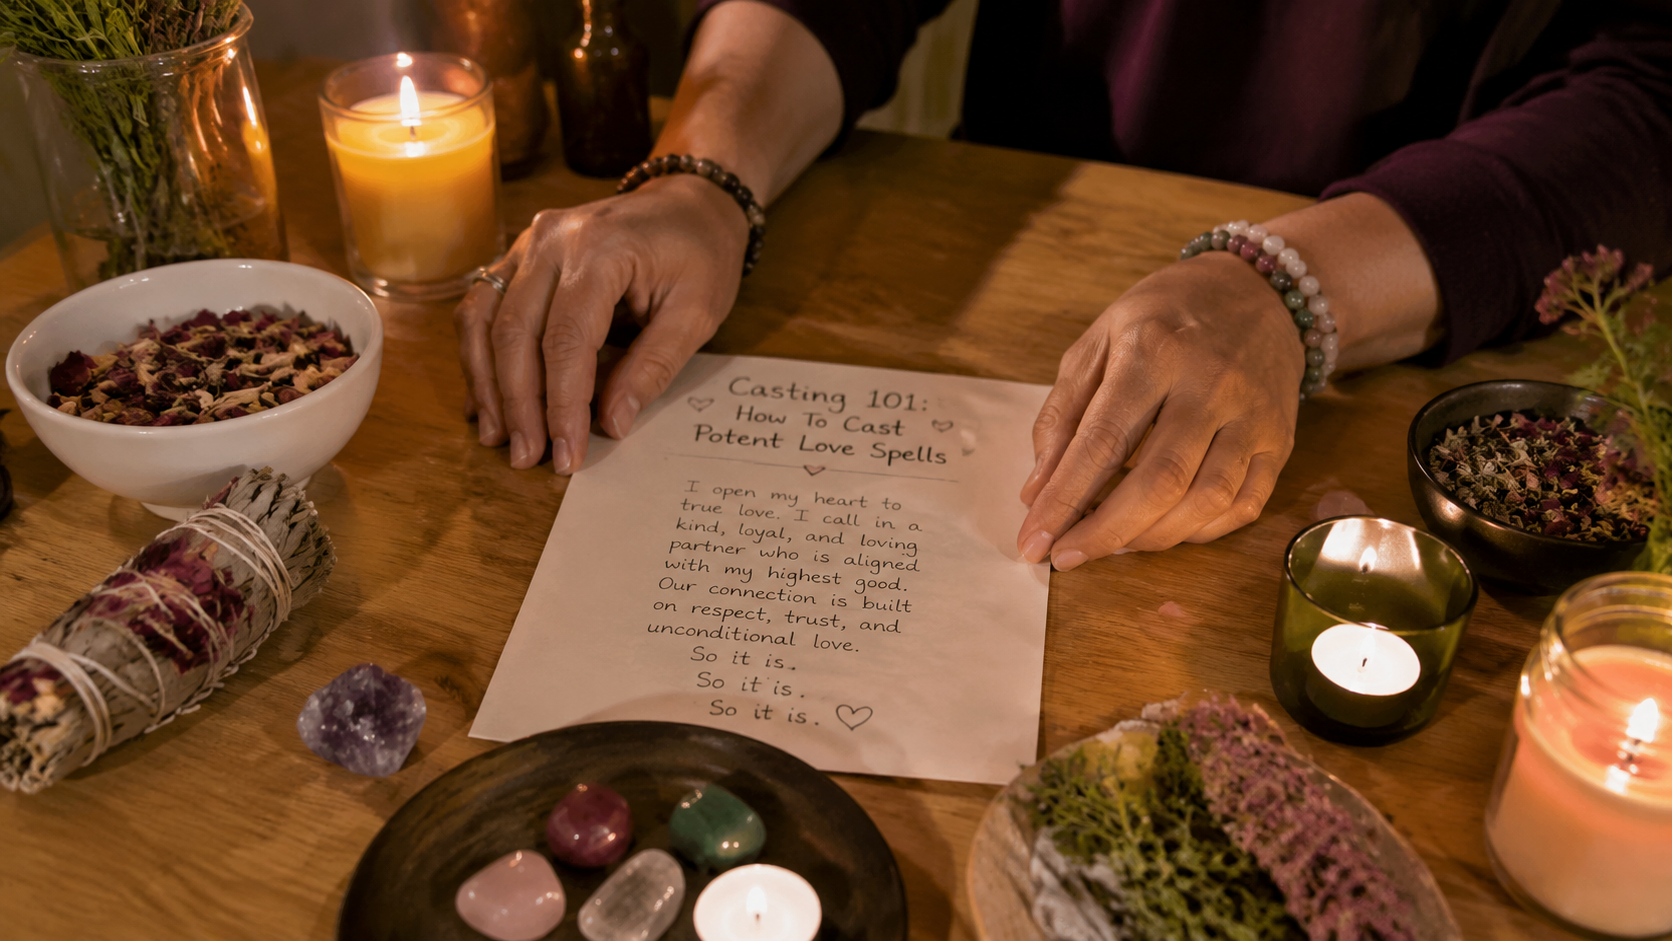 Casting 101:
How To Cast
Potent Love Spells
I open my heart to
true love. I call in a
kind, loyal, and loving
partner who is aligned
with my highest good.
Our connection is built
on respect, trust, and
unconditional love.
So it is.
So it is.
So it is.